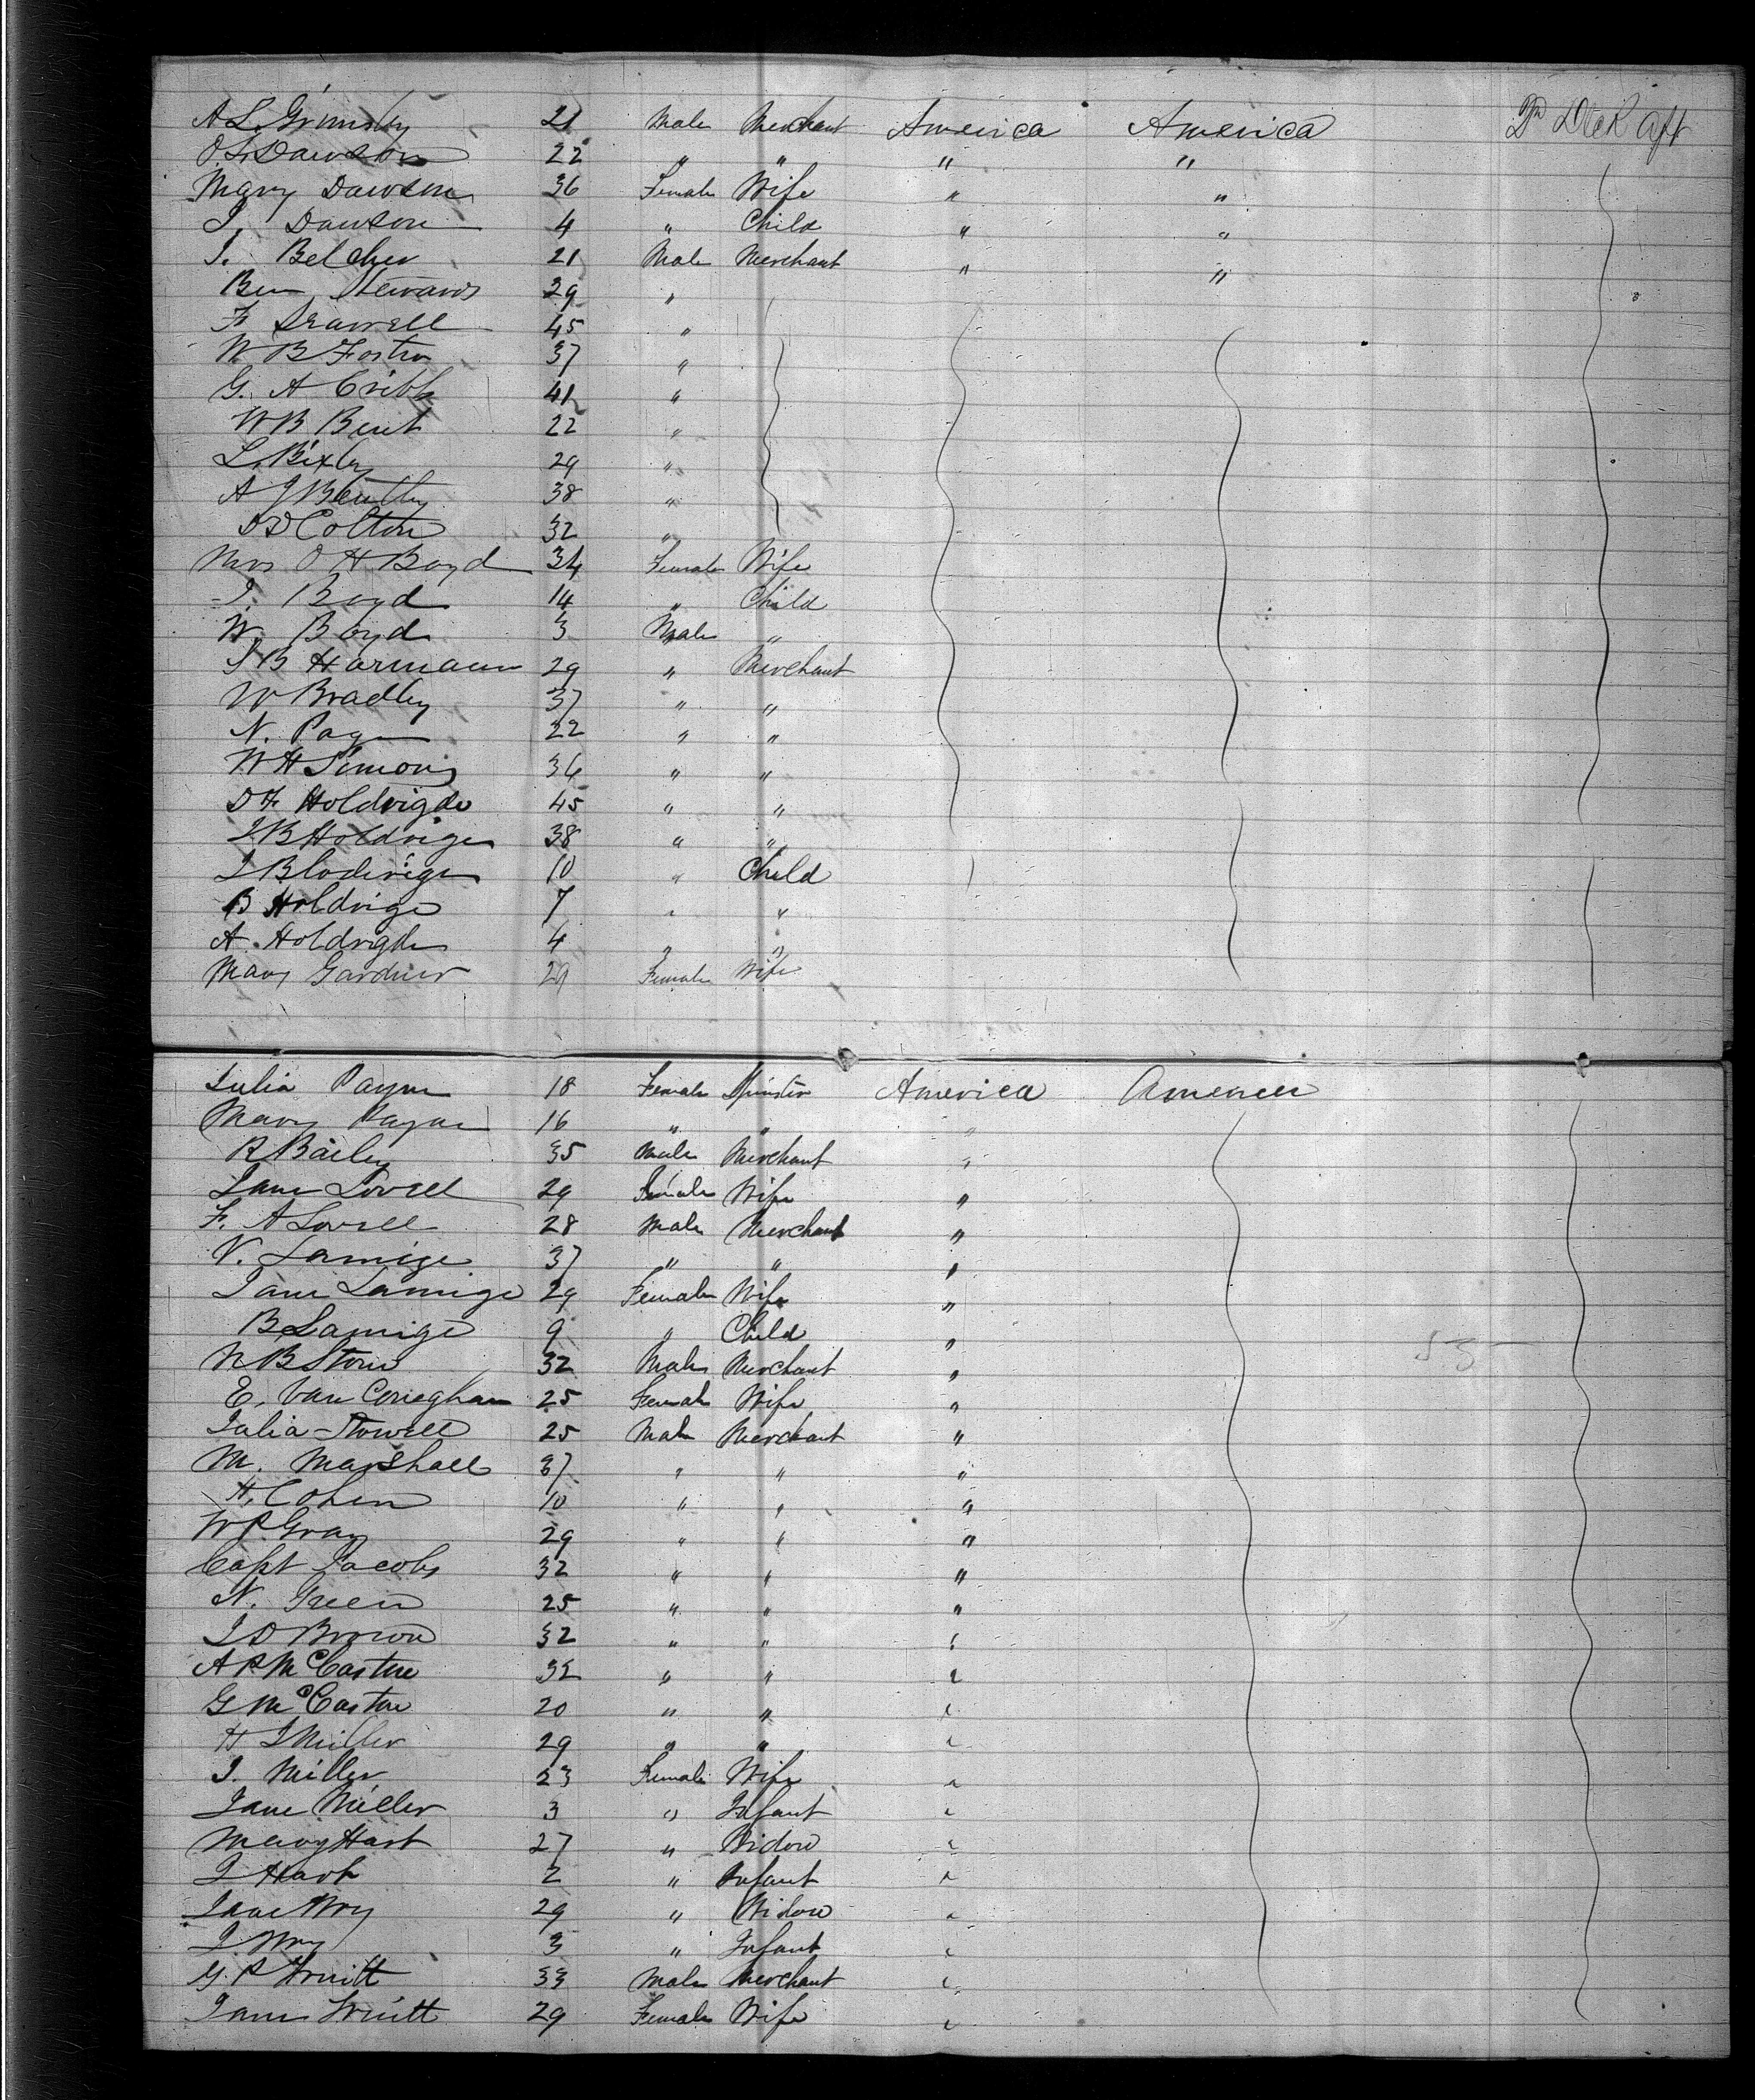 A L Grimsby 21 Male Merchant America America 2n Deck aft
O L Dawson 22 " " " "
Mary Dawson 36 Female Wife " "
J. Dawson 4 " Child " "
J. Belcher 21 Male Merchant " "
Ben Stewards 29 "
F 45 "
W B Foster 37 "
G. A Cribb 41 "
W B Burt 22 "
L. Bixby 29 "
A J Bentley 38 "
D D Colton 32 "
Mrs O H Boyd 34 Female Wife
J. Boyd 14 " Child
W. Boyd 3 Male "
J B Harmann 29 " Merchant
W Bradley 37 " "
N. Page 22 " "
W H Simons 36 " "
D F Holdrigde 45 " "
J B Holdrige 38 " "
J 10 " Child
B Holdrige 7 " "
A. Holdrigde 4 " "
Mary Gardner 29 Female Wife
Julia Payne 18 Female Spinster America America
Mary Payne 16 " " "
R Bailey 35 Male Merchant "
Jane Lovell 29 Female Wife "
F. A Lovell 28 Male Merchant "
V. Lamige 37 " " "
Jane Lamige 29 Female Wife "
B Lamige 9 " Child "
N B Stow 32 Male Merchant "
E. Van 25 Female Wife "
Julia Stowell 25 Male Merchant "
M. Marshall 37 " " "
H. Cohen 10 " " "
W P Gray 29 " " "
Capt Jacobs 32 " " "
N. Green 25 " " "
J D Brown 32 " " "
A P McCastue 32 " " "
G McCastue 20 " " "
H J Miller 29 " " "
J. Miller 23 Female Wife "
Jane Miller 3 " Infant "
Mary Hart 27 " Widow "
J Hart 2 " Infant "
Jane Wry 29 " Widow "
J Wry 3 " Infant "
G. P Truitt 33 Male Merchant "
Jane Truitt 29 Female Wife "